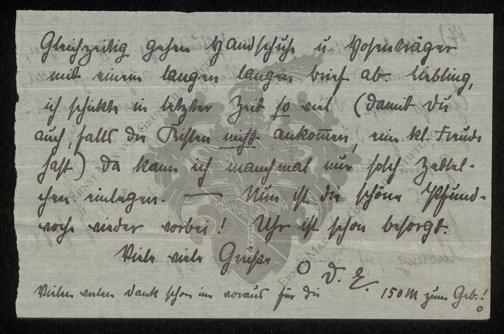 Gleichzeitig gehen Handschuhe u. Hosenträger
mit einem langen langen Brief ab. Liebling,
ich schickte in letzter Zeit so viel (damit Du
auch, falls die Kisten nicht ankommen, eine kl. Freude
hast) da kann ich manchmal nur solch Zettel-
chen einlegen. — Nun ist die schöne Pfund-
woche wieder vorbei! Uhr ist schon besorgt.
Viele viele Grüsse
D. E.
Vielen vielen Dank schon im voraus für die 150 M zum Geb.!